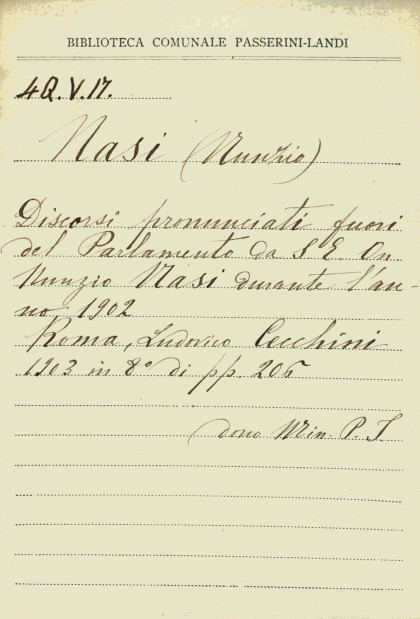 BIBLIOTECA COMUNALE PASSERINI-LANDI
4Q.V.17.
Nasi (Nunzio)
Discorsi pronunciati fuori
del Parlamento da S E On
Nunzio Nasi durante l'an-
no, 1902
Roma, Ludovico Cecchini
1903 in 8° di pp. 206
dono Min. P. I.